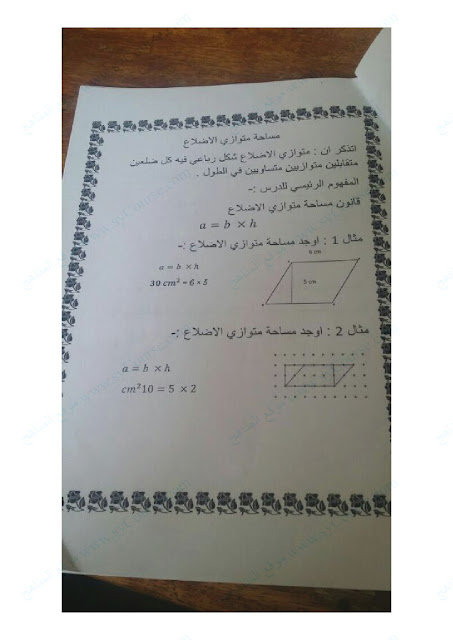 مساحة متوازي الاضلاع
اتذكر ان : متوازي الاضلاع شكل رباعي فيه كل ضلعين
متقابلين متوازيين متساويين في الطول .
المفهوم الرئيسي للدرس :-
قانون مساحة متوازي الاضلاع
a = b × h
مثال 1 : اوجد مساحة متوازي الاضلاع :-
6 cm
a = b × h
5 cm
30 cm² = 6 × 5
مثال 2 : اوجد مساحة متوازي الاضلاع :-
a = b × h
cm²10 = 5 × 2